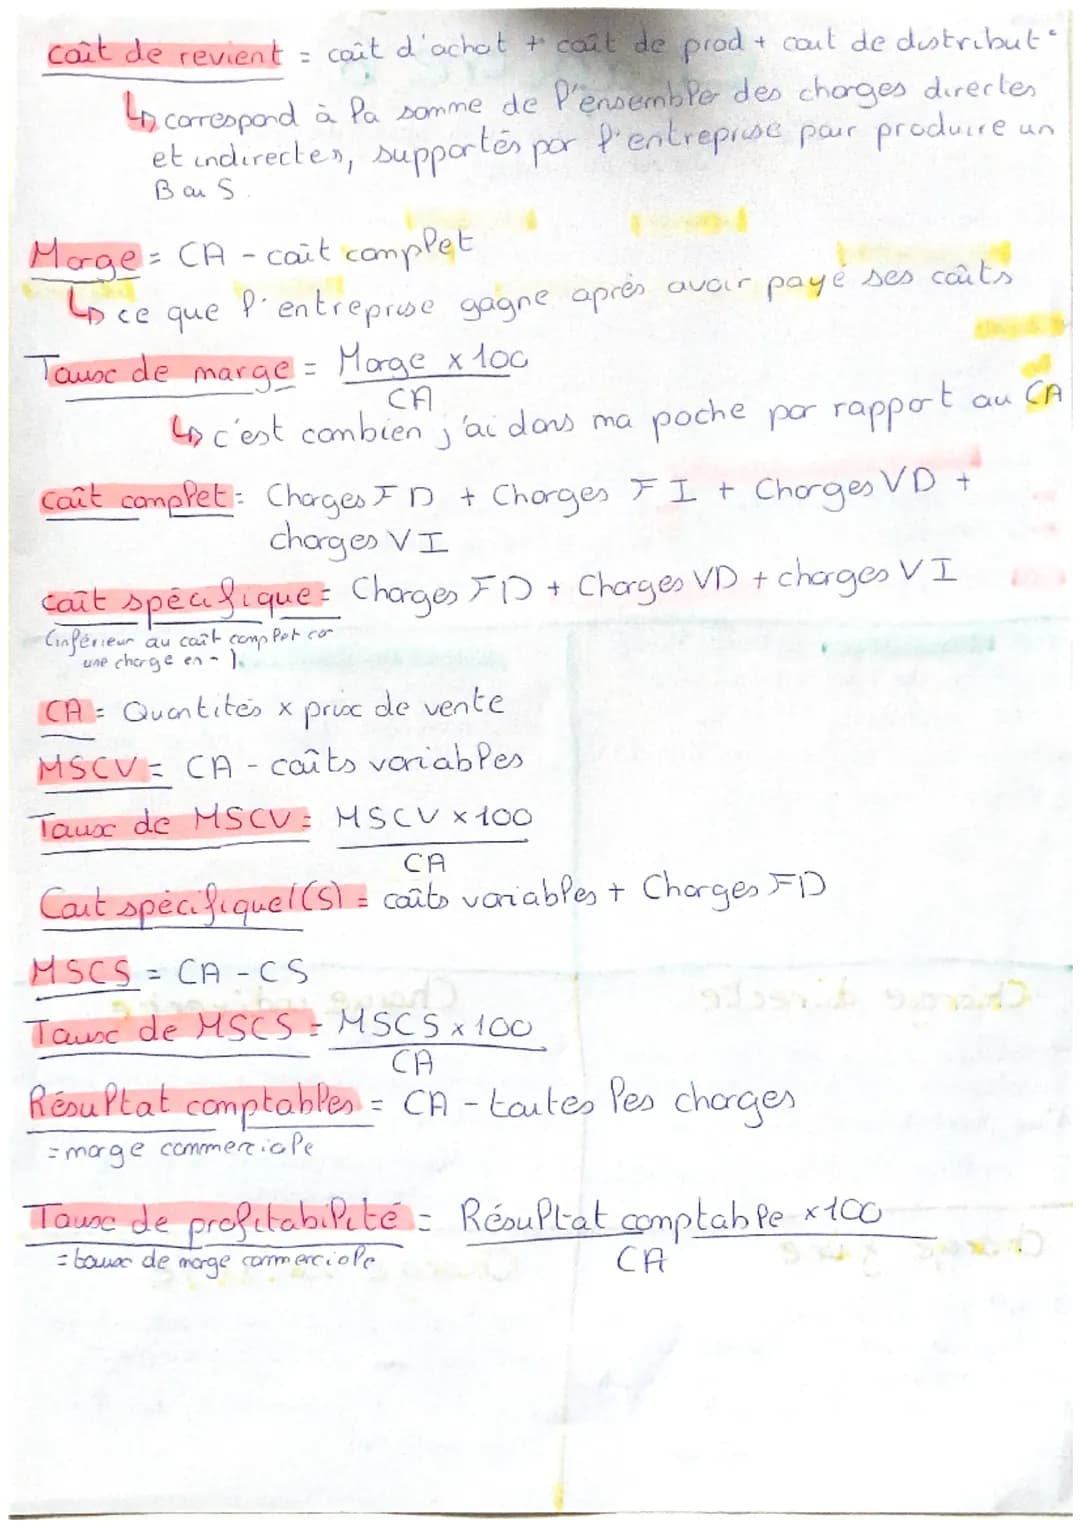 coût de revient = coût d'achat + coût de prod + cout de distribut°
↳ correspond à la somme de l'ensemble des charges directes
et indirectes, supportés par l'entreprise pour produire un
B ou S.
Marge = CA - coût complet
↳ ce que l'entreprise gagne après avoir payé ses coûts
Taux de marge = Marge x 100
CA
↳ c'est combien j'ai dans ma poche par rapport au CA
coût complet = Charges FD + Charges FI + Charges VD +
charges VI
coût spécifique = Charges FD + Charges VD + charges VI
(inférieur au coût complet car
une charge en - ).
CA = Quantités x prix de vente
MSCV = CA - coûts variables
Taux de MSCV = MSCV x 100
CA
Cout spécifique (CS) = coûts variables + Charges FD
MSCS = CA - CS
Taux de MSCS = MSCS x 100
CA
Résultat comptables = CA - toutes les charges
= marge commerciale
Taux de profitabilité = Résultat comptable x 100
= taux de marge commerciale
CA